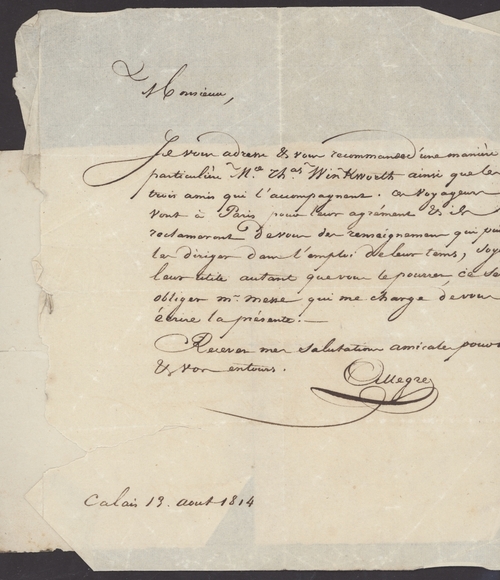 Monsieur,
Je vous adresse & vous recommande d'une manière
particulière Mr. Thas. Winkworth ainsi que les
trois amis qui l'accompagnent. ces voyageurs
vont à Paris pour leur agrément & ils
réclameront De vous des renseignement qui
les diriger dans l'emploi de leur tems,
leur utile autant que vous le pourrez, ce
obliger mr. messe qui me charge de vous
écrire la présente. —
Recevez mes salutations amicales pour
& vos entours.
Allegre
Calais 13. aout 1814